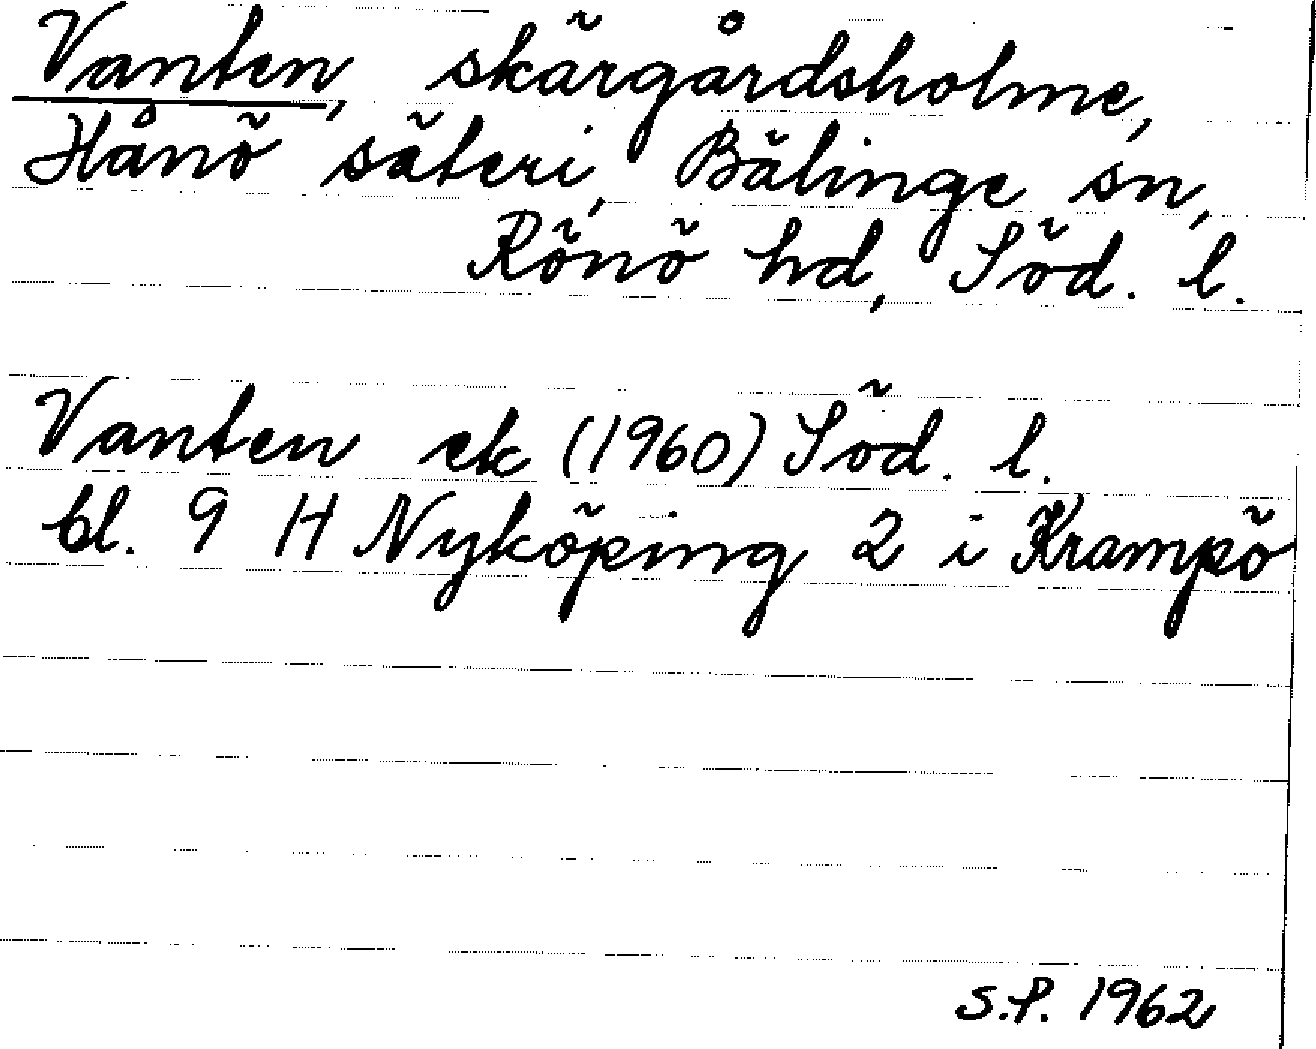 Vanten, skärgårdsholme,
Hånö säteri, Bälinge sn,
Rönö hd, Söd. l.
Vanten ek (1960) Söd. l.
bl. 9 H Nyköping 2 i Krampö
S.P. 1962